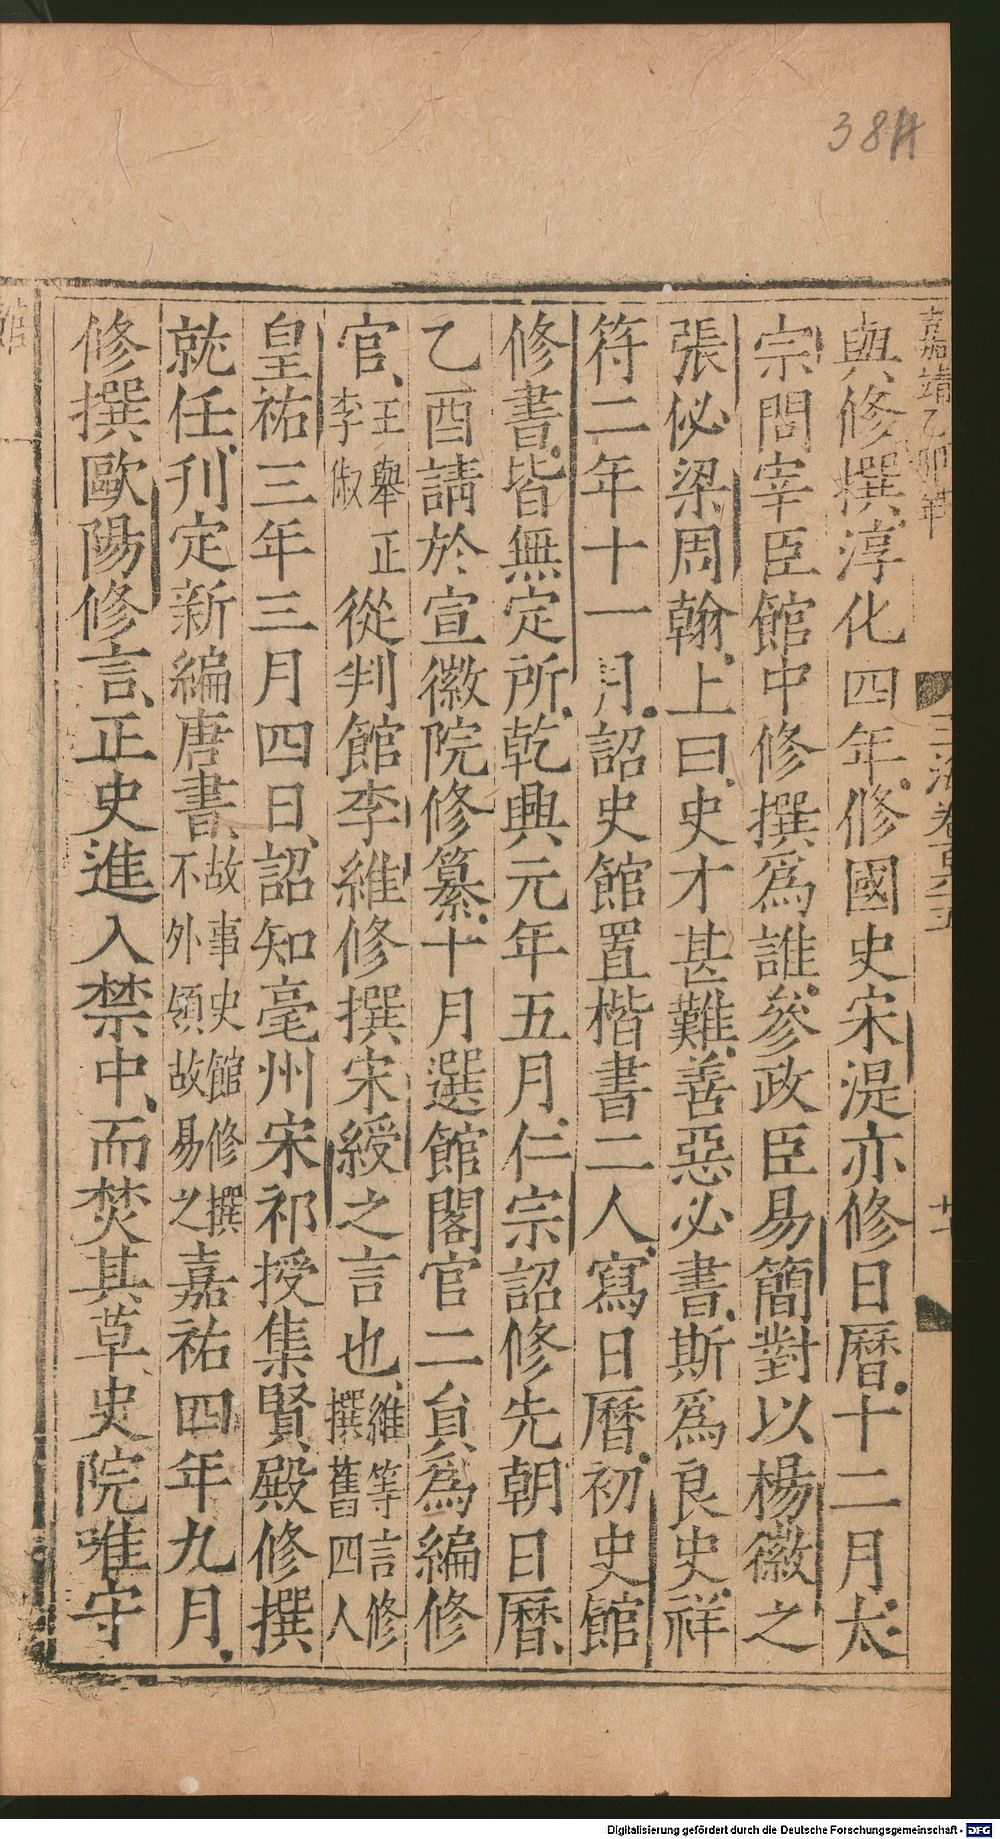 384
嘉靖乙卯年
玉海卷百六五
廿一
與修撰淳化四年修國史宋湜亦修日曆十二月太
宗問宰臣館中修撰爲誰參政臣易簡對以楊徽之
張佖梁周翰上曰史才甚難善惡必書斯爲良史祥
符二年十一月詔史館置楷書二人寫日曆初史館
修書皆無定所乾興元年五月仁宗詔修先朝日曆
乙酉請於宣徽院修纂十月選館閣官二員爲編修
官王舉正李俶從判館李維修撰宋綬之言也維等言修撰舊四人
皇祐三年三月四日詔知亳州宋祁授集賢殿修撰
就任刋定新編唐書故事史館修撰不外領故易之嘉祐四年九月
修撰歐陽修言正史進入禁中而焚其草史院唯守
館
Digitalisierung gefördert durch die Deutsche Forschungsgemeinschaft - DFG